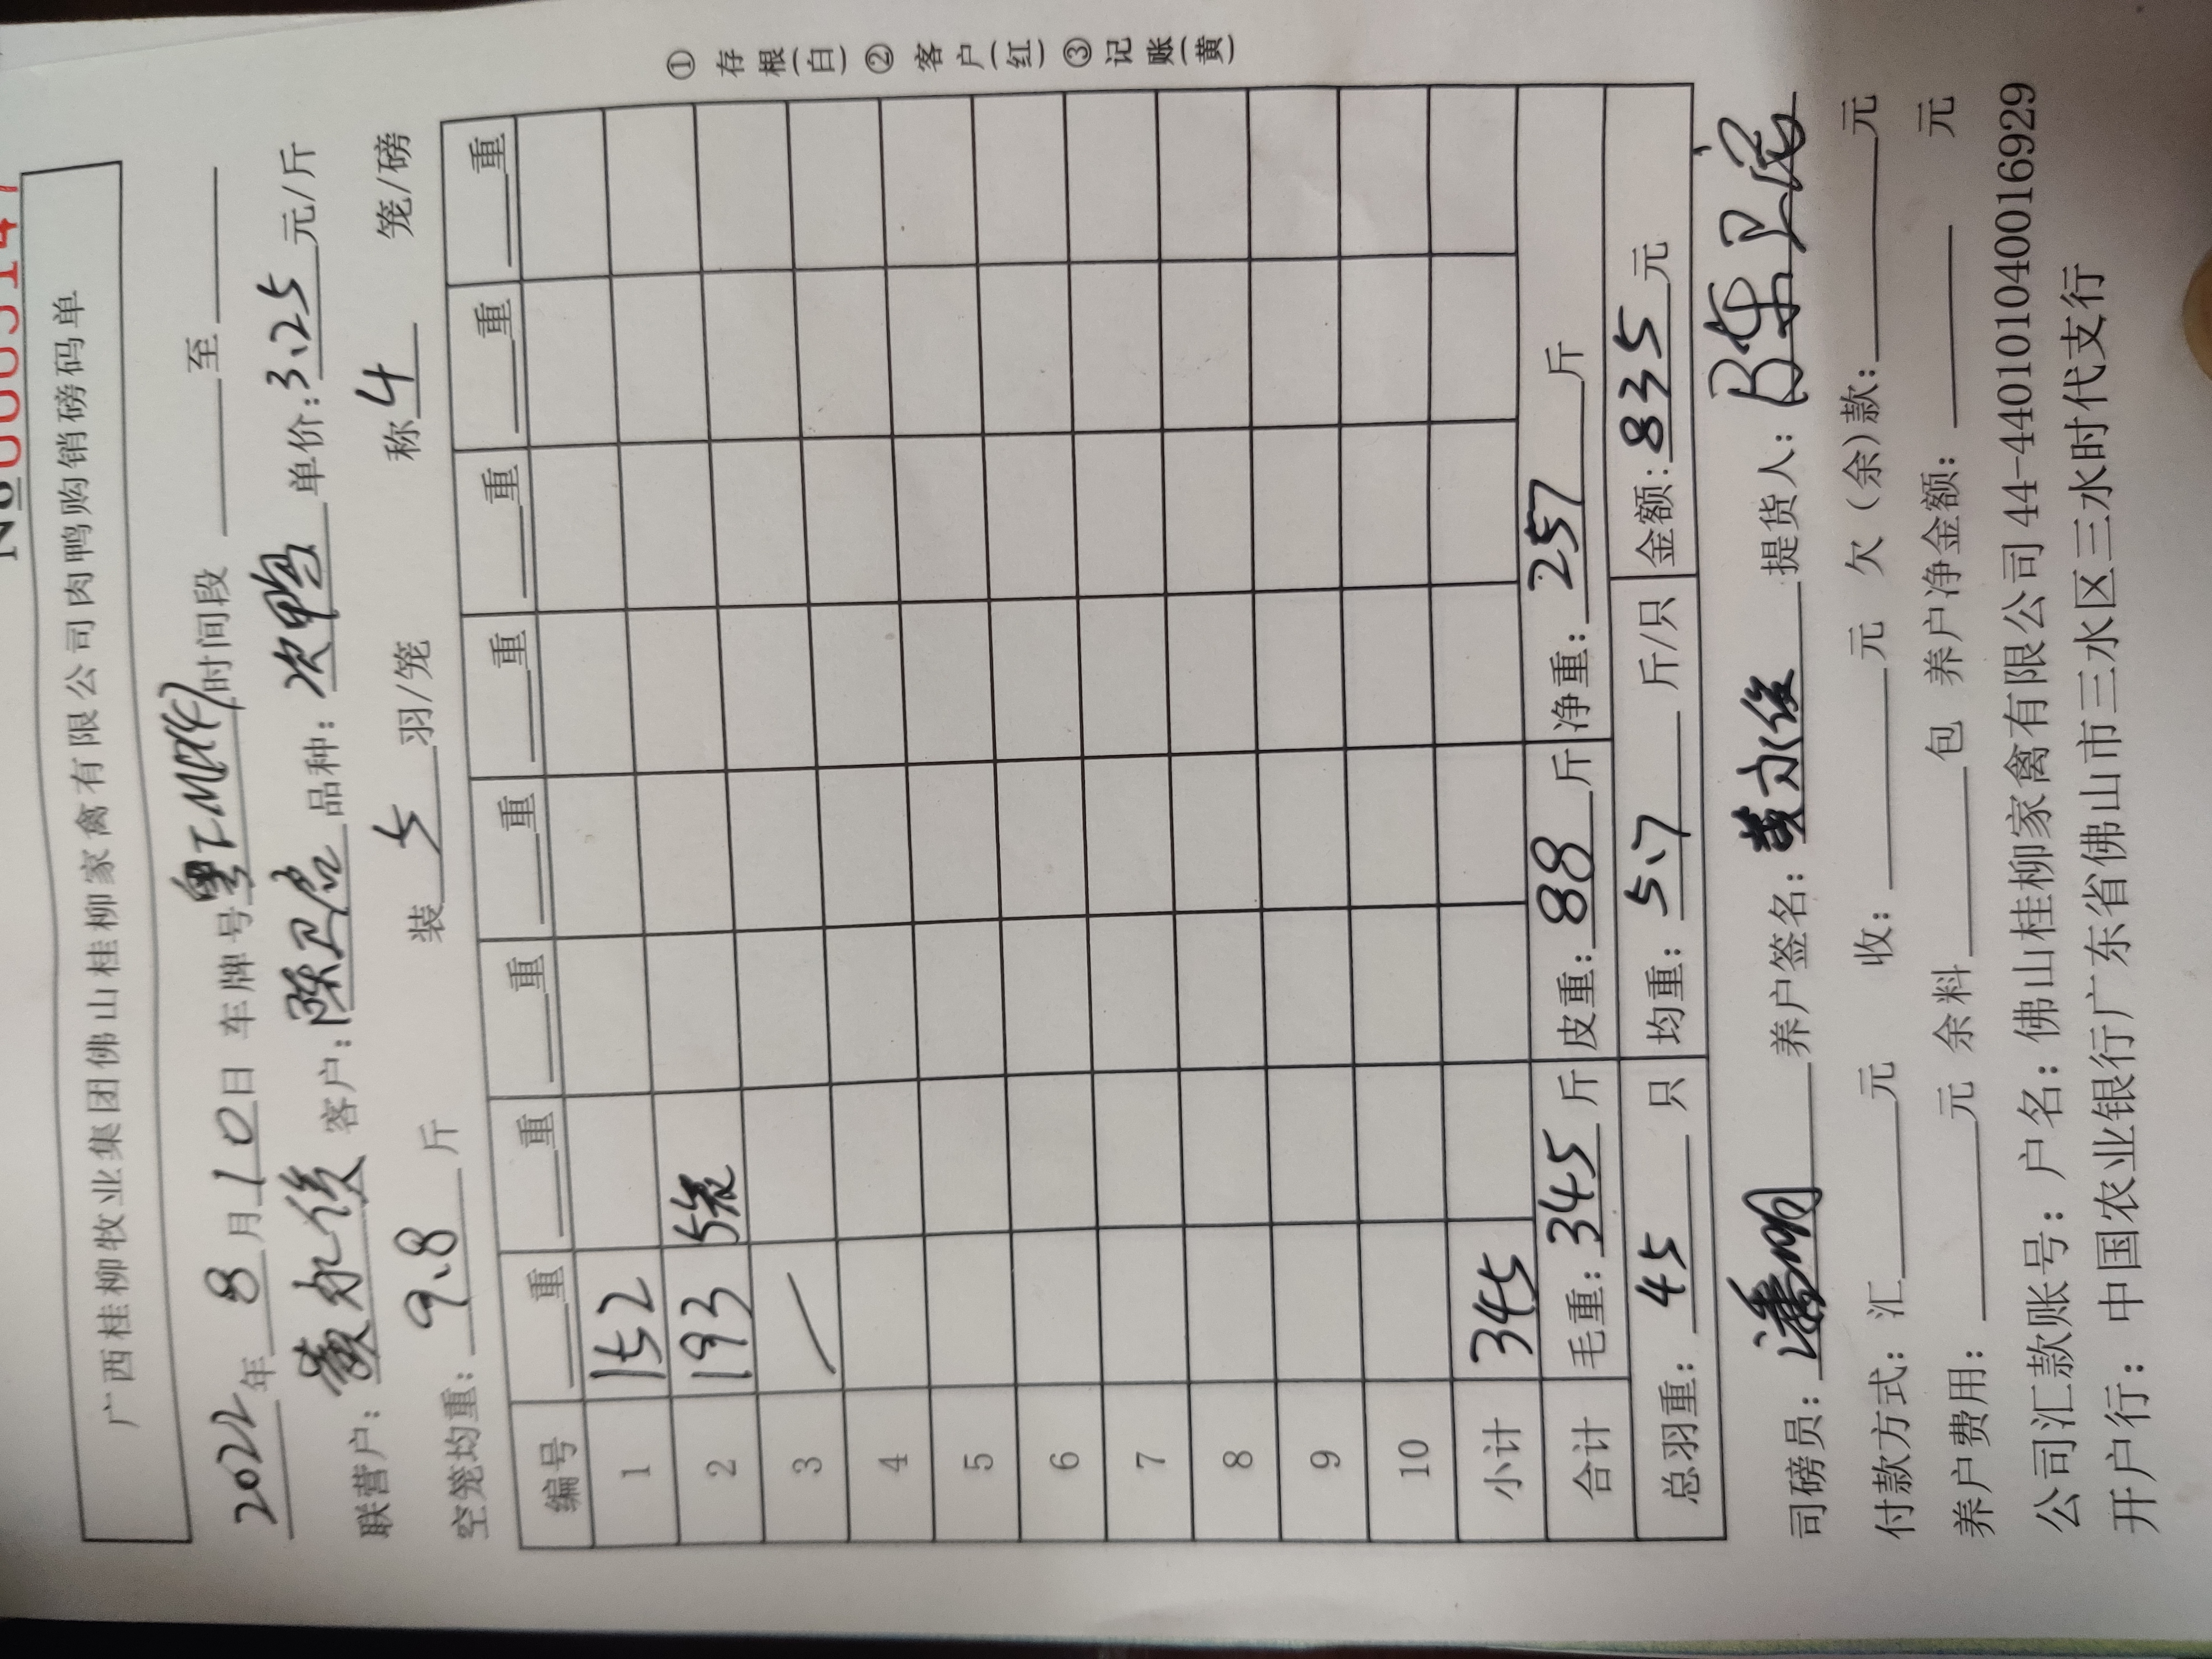 ① 存根(白) ② 客户(红) ③ 记账(黄)
广西桂柳牧业集团佛山桂柳家禽有限公司肉鸭购销磅码单
2022年 8 月 10 日 车牌号 时间段 至
联营户: 黄永俊 客户: 陈卫 品种: 次鸭 单价: 3.25 元/斤
空笼均重: 9.8 斤 装 5 羽/笼 称 4 笼/磅
编号 重 重 重 重 重 重 重 重
1 152
2 193 5笼
3 /
4
5
6
7
8
9
10
小计 345
合计 毛重: 345 斤 皮重: 88 斤 净重: 257 斤
总羽重: 45 只 均重: 5.7 斤/只 金额: 835 元
司磅员: 潘明 养户签名: 黄永俊 提货人: 陈卫
付款方式: 汇 元 收: 元 欠（余)款: 元
养户费用: 元 余料 包 养户净金额: 元
公司汇款账号: 户名: 佛山桂柳家禽有限公司 44-440101040016929
开户行: 中国农业银行广东省佛山市三水区三水时代支行